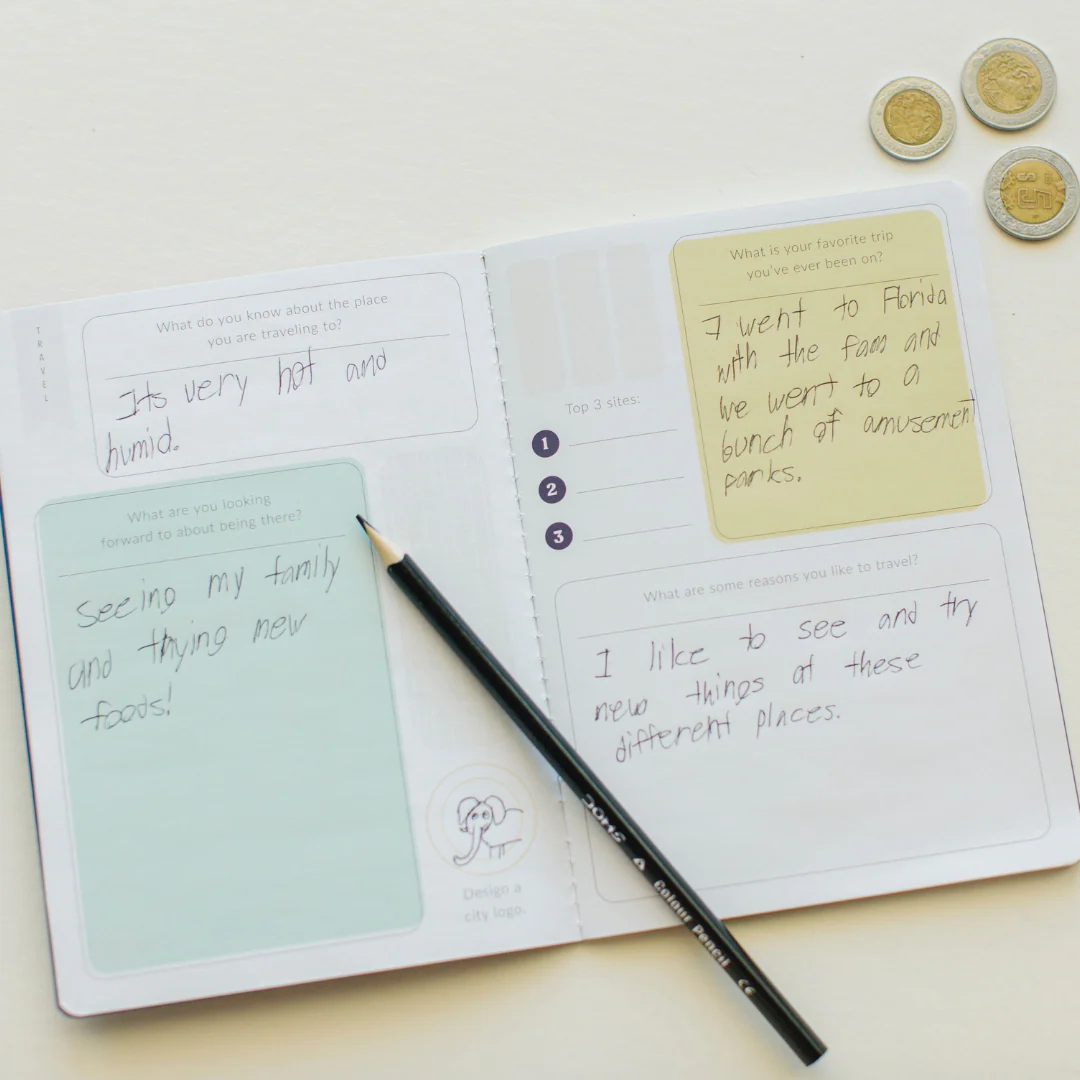 TRAVEL
What do you know about the place
you are traveling to?
Its very hot and
humid.
What are you looking
forward to about being there?
seeing my family
and trying new
foods!
Design a
city logo.
Top 3 sites:
1
2
3
What is your favorite trip
you've ever been on?
I went to Florida
with the fam and
we went to a
bunch of amusement
parks.
What are some reasons you like to travel?
I like to see and try
new things at these
different places.
DOMS Colour Pencil CE
$5